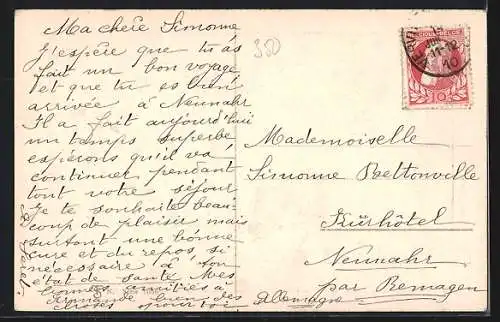 Ma chère Simonne
J'espère que tu as
fait un bon voyage
et que tu es bien
arrivée à Neunahr
Il a fait aujourd'hui
un temps superbe
espérons qu'il va
continuer pendant
tout votre séjour
Je te souhaite beau-
coup de plaisir mais
surtout une bonne
cure et du repos si
nécessaire à ton
état de santé Mes
bonnes amitiés à
Armande bien des
choses pour toi
350
11-12
10
Mademoiselle
Simonne Bettonville
Kürhôtel
Neunahr
par Remagen
Allemagne